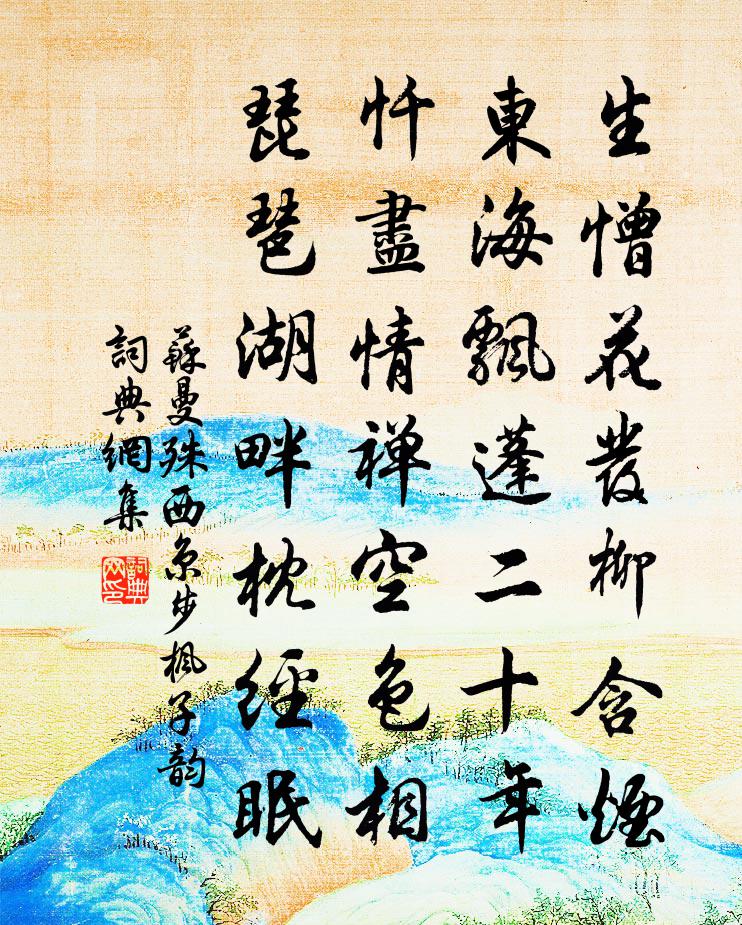 生憎花發柳含煙
東海飄蓬二十年
忏盡情禅空色相
琵琶湖畔枕經眠
蘇曼殊西京步楓子韵
詞典網集
詞典
网印